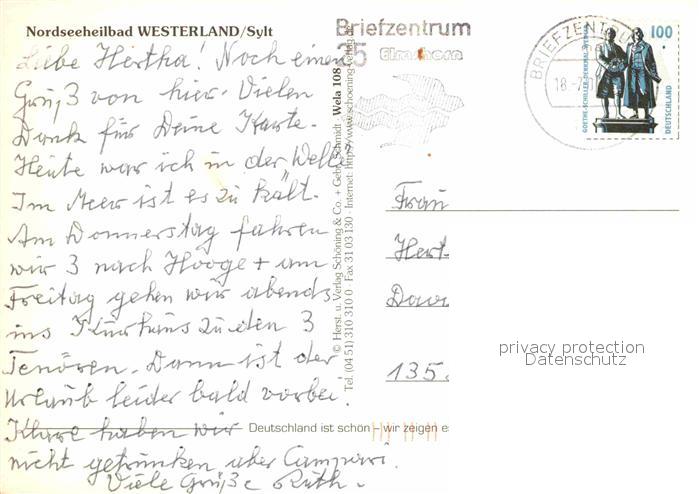 Nordseeheilbad WESTERLAND/Sylt
Liebe Hertha! Noch einen
Gruß von hier. Vielen
Dank für Deine Karte.
Heute war ich in der Welle
Im Meer ist es zu kalt.
Am Donnerstag fahren
wir 3 nach Hooge + am
Freitag gehen wir abends
ins Kurhaus zu den 3
Tenören. Dann ist der
Urlaub leider bald vorbei.
Klare haben wir
nicht getrunken aber Campari.
Viele Grüße Ruth.
Deutschland ist schön – wir zeigen es
© Herst. u. Verlag Schöning & Co. + Gebr. Schmidt · Wela 108
Tel. (04 51) 310 310 0 · Fax 31 03 130 · Internet: http://www.schoening-verlag.de
Briefzentrum
25
Elmshorn
BRIEFZENTRUM
18.-7.
GOETHE-SCHILLER-DENKMAL WEIMAR
100
DEUTSCHLAND
Frau
Hert
135
privacy protection
Datenschutz